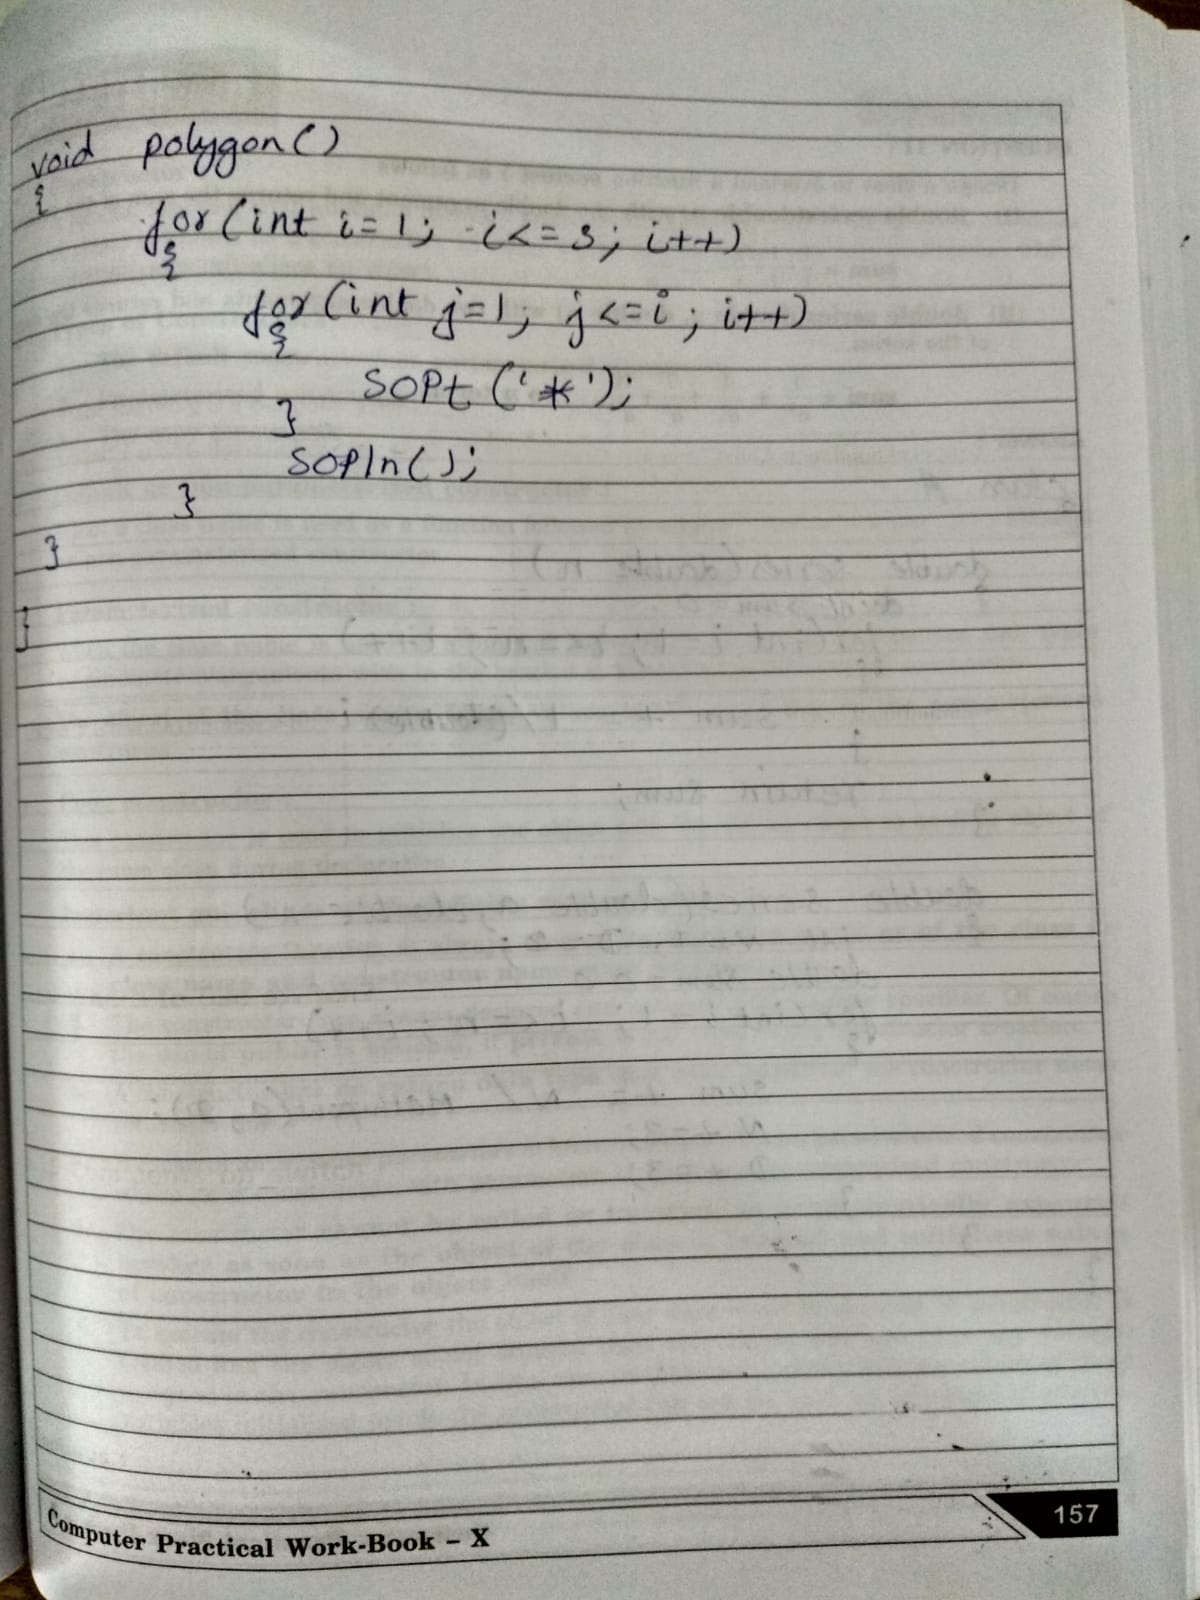 void polygon()
{
for(int i=1; i<=3; i++)
{
for(int j=1; j<=i; i++)
{
SOPt ('*');
}
SOPln();
}
}
}
Computer Practical Work-Book – X
157